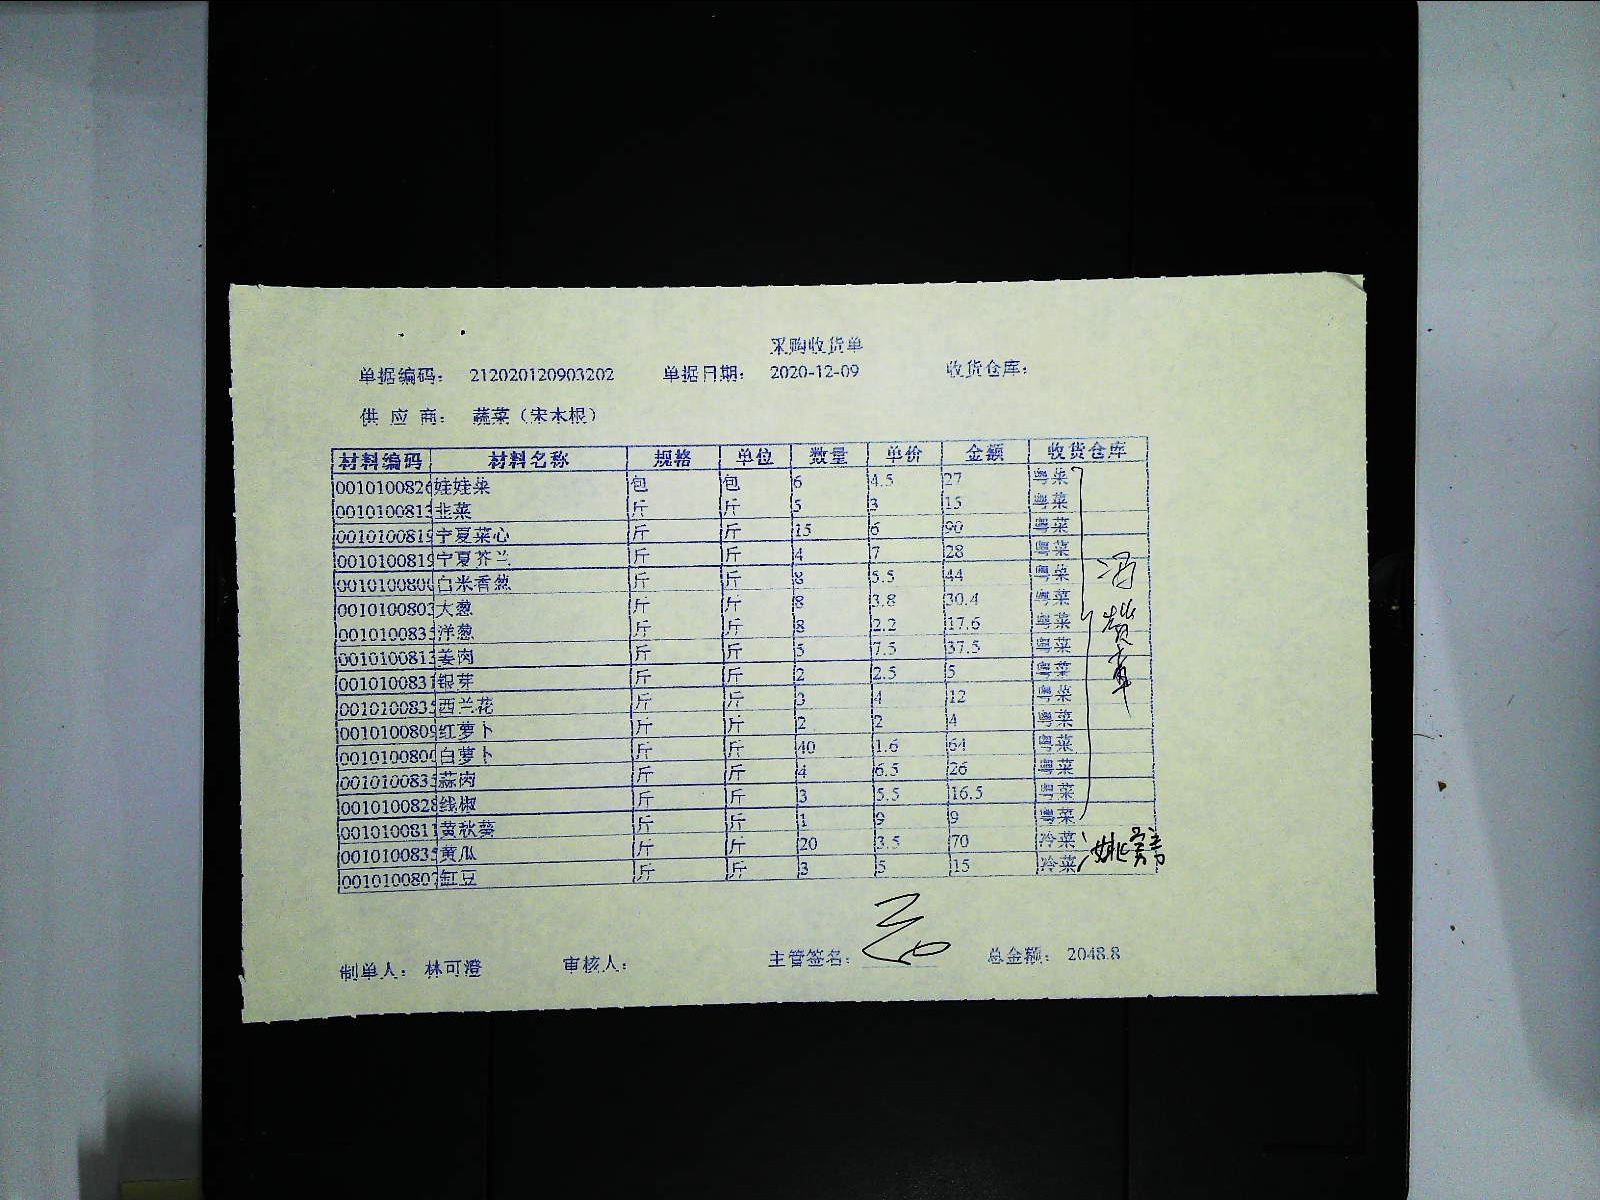 采购收货单
单据编码： 212020120903202 单据日期： 2020-12-09 收货仓库：
供 应 商： 蔬菜（宋木根）
材料编码 材料名称 规格 单位 数量 单价 金额 收货仓库
0010100826 娃娃菜 包 包 6 4.5 27 粤菜
0010100813 韭菜 斤 斤 5 3 15 粤菜
001010081 宁夏菜心 斤 斤 15 6 90 粤菜
001010081 宁夏芥兰 斤 斤 4 7 28 粤菜
001010080 白米香葱 斤 斤 8 5.5 44 粤菜
0010100803 大葱 斤 斤 8 3.8 30.4 粤菜
001010083 洋葱 斤 斤 8 2.2 17.6 粤菜
001010081 姜肉 斤 斤 5 7.5 37.5 粤菜
0010100831 银芽 斤 斤 2 2.5 5 粤菜
001010083 西兰花 斤 斤 3 4 12 粤菜
001010080 红萝卜 斤 斤 2 2 4 粤菜
001010080 白萝卜 斤 斤 40 1.6 64 粤菜
001010083 蒜肉 斤 斤 4 6.5 26 粤菜
0010100828 线椒 斤 斤 3 5.5 16.5 粤菜
0010100811 黄秋葵 斤 斤 1 9 9 粤菜
001010083 黄瓜 斤 斤 20 3.5 70 冷菜
001010080 豇豆 斤 斤 3 5 15 冷菜
制单人： 林可澄 审核人： 主管签名： 总金额： 2048.8